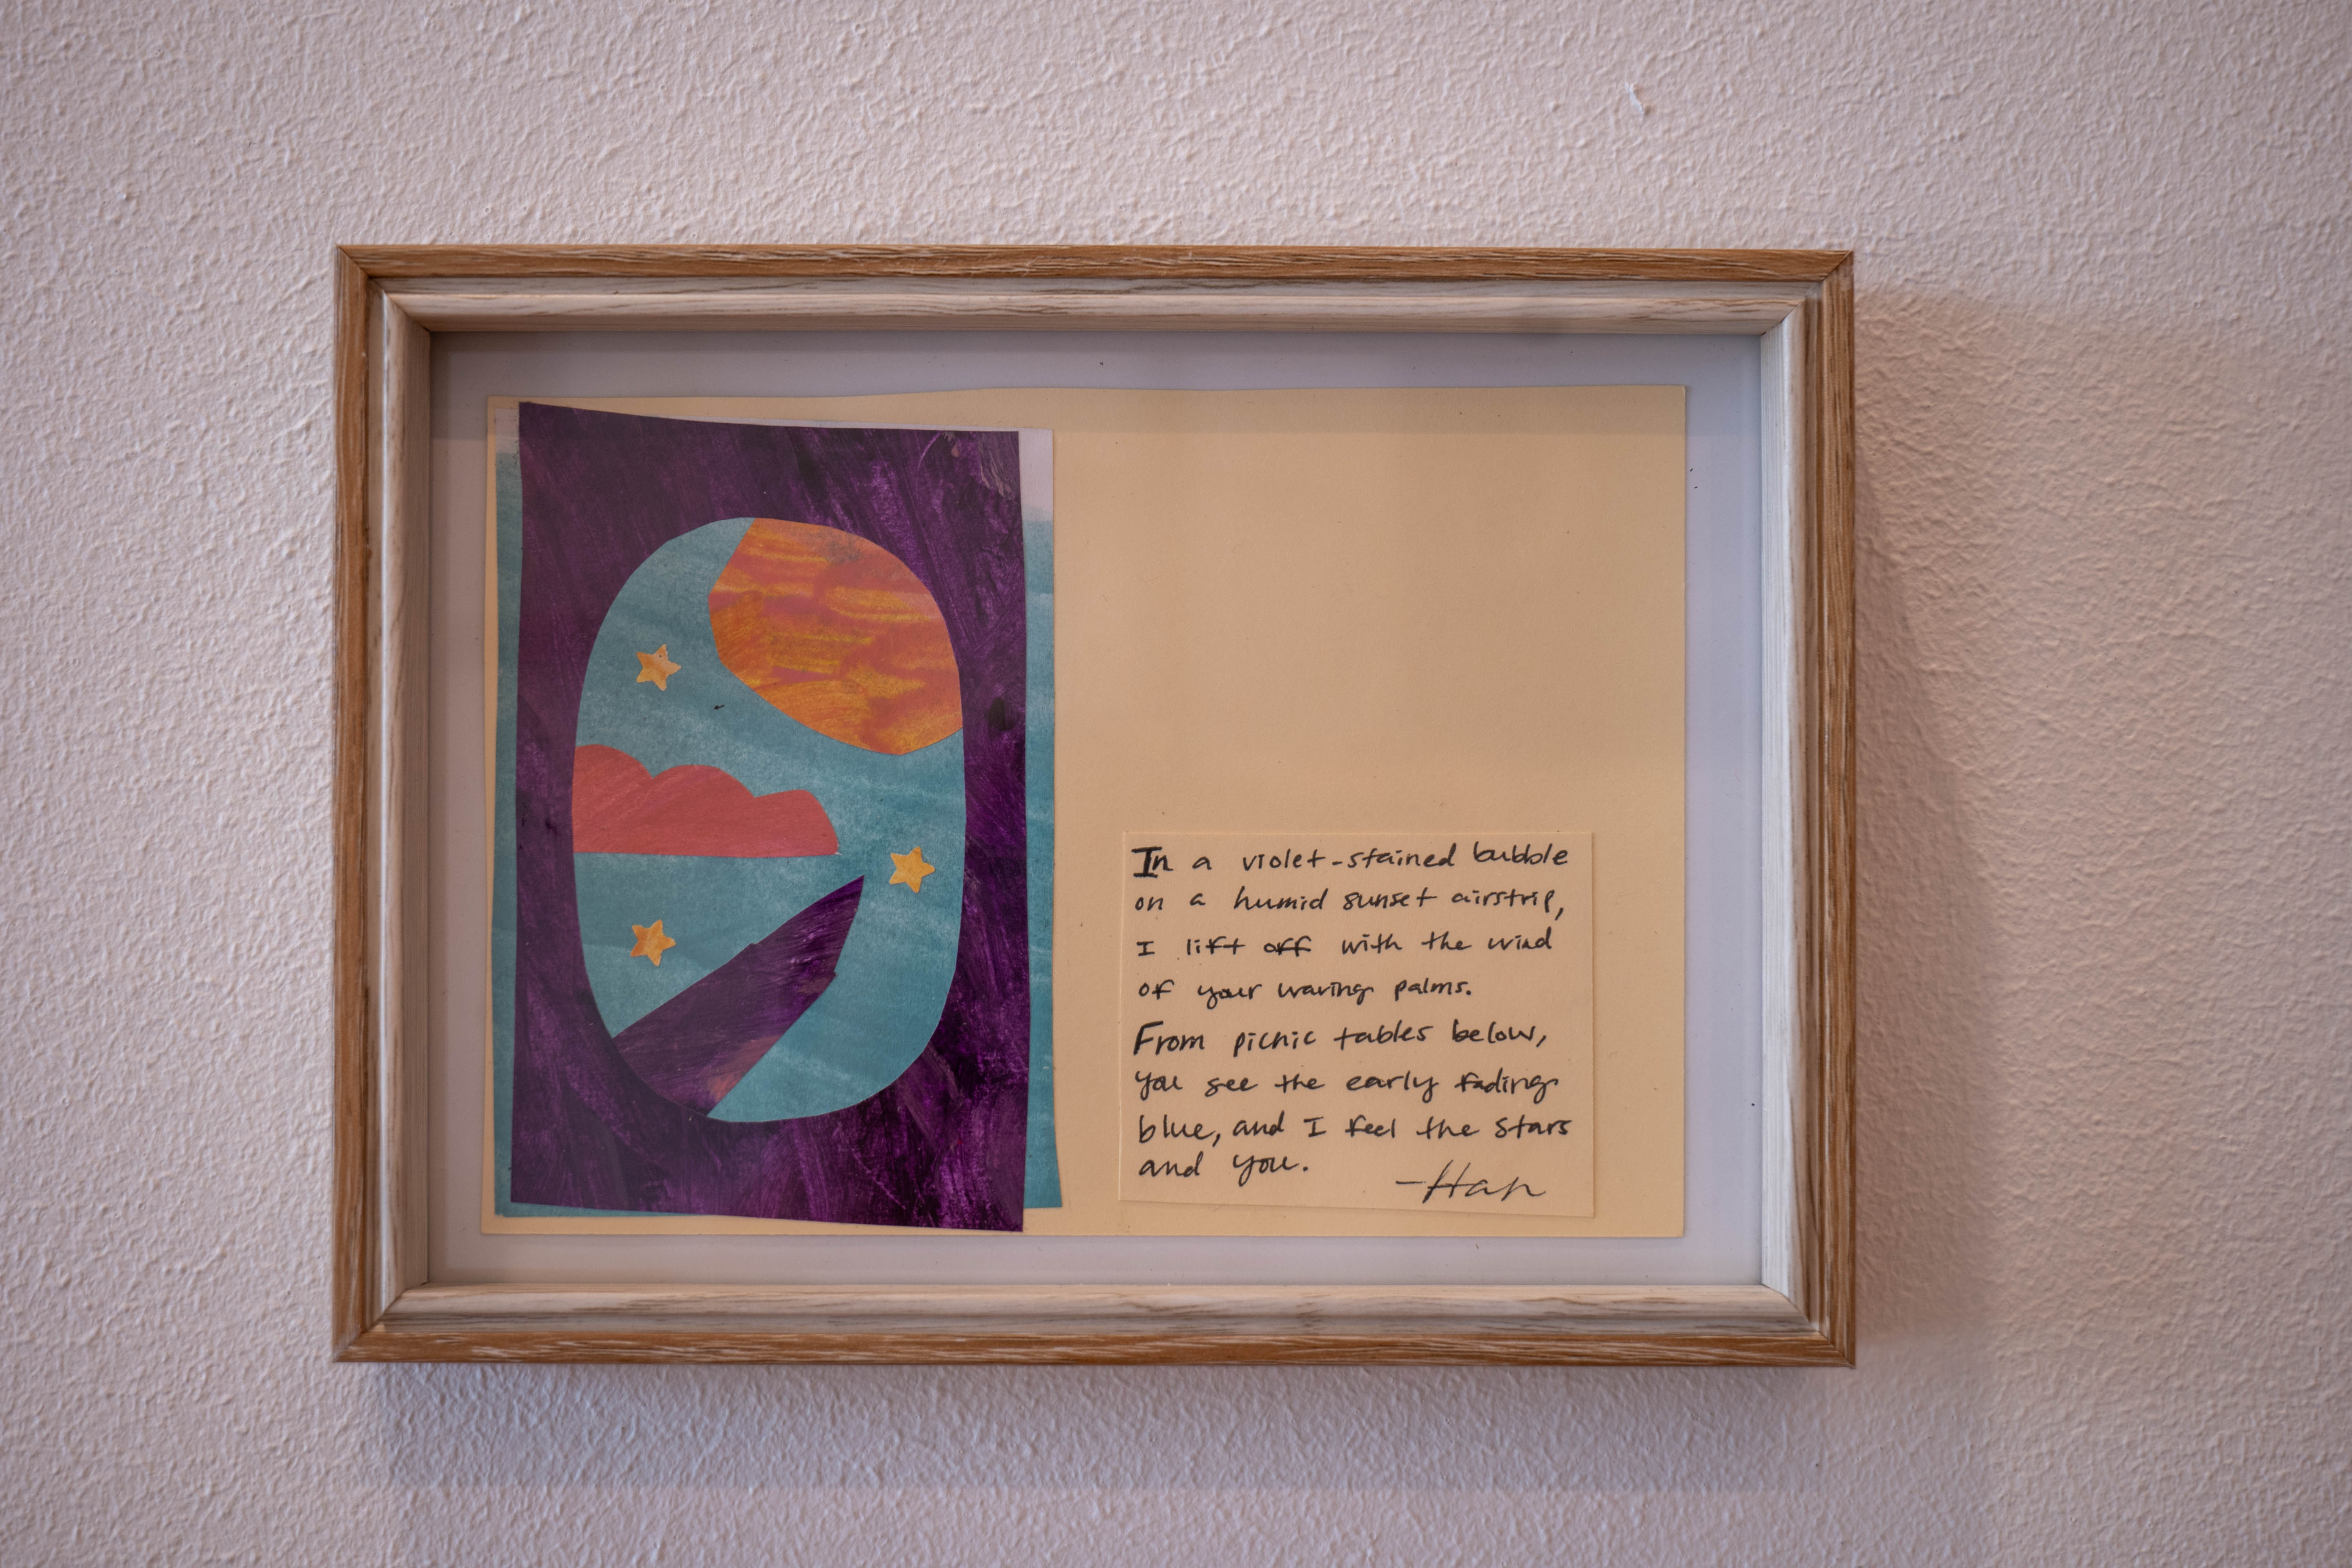 In a violet-stained bubble
on a humid sunset airstrip,
I lift off with the wind
of your waving palms.
From picnic tables below,
you see the early fading
blue, and I feel the stars
and you.
-Han